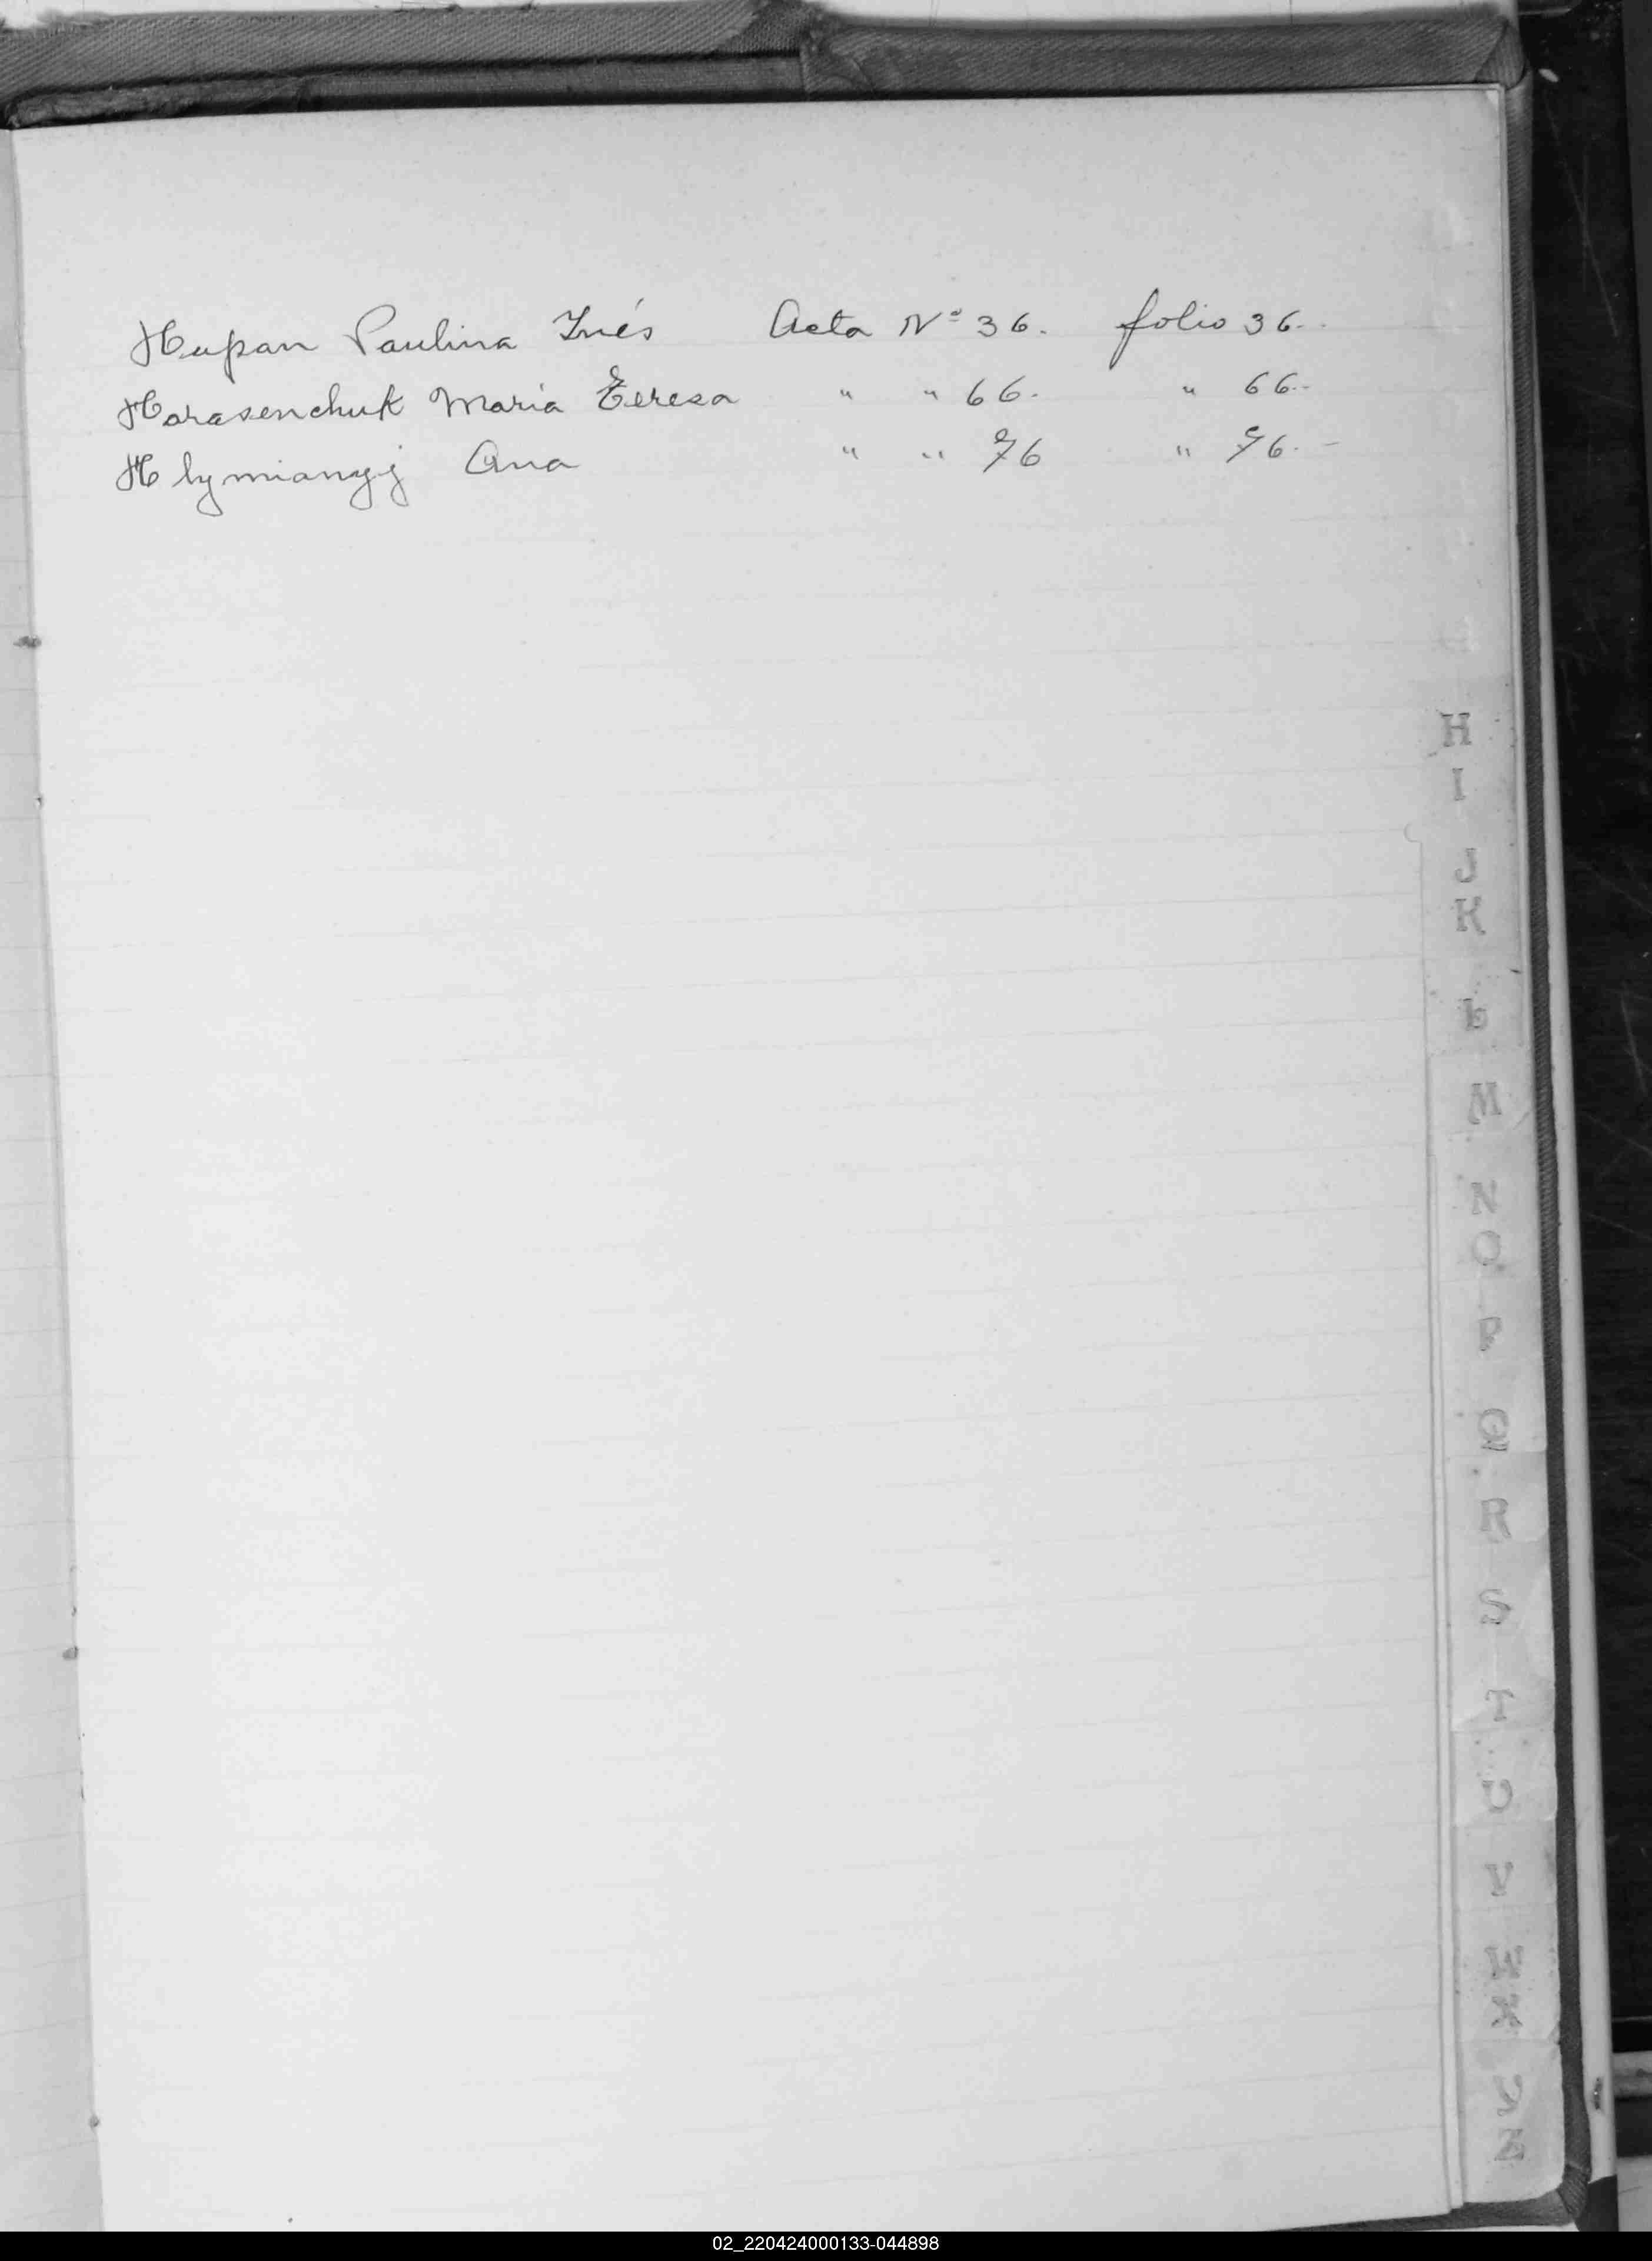 Hupan Paulina Inés Acta Nº 36. folio 36.
Harasenchuk Maria Teresa " " 66. " 66.
Hlymiangij Ana " " 76 " 76.
H
I
J
K
L
M
N
O
P
Q
R
S
T
U
V
W
X
Y
Z
02_220424000133-044898